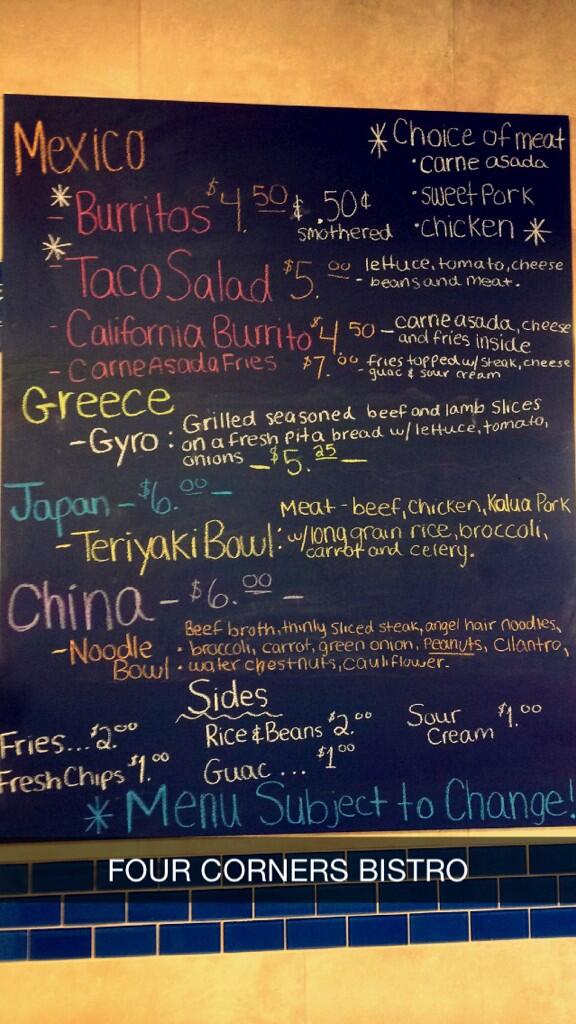 Mexico
* Choice of meat
• carne asada
• sweet Pork
• chicken *
* - Burritos $4.50 $ .50¢
smothered
* - Taco Salad $5.00 lettuce, tomato, cheese
- beans and meat.
- California Burrito $4 50 - carne asada, cheese
and fries inside
- Carne Asada Fries $7.00 - fries topped w/ steak, cheese
guac & sour cream
Greece
- Gyro : Grilled seasoned beef and lamb slices
on a fresh pita bread w/ lettuce, tomato,
onions - $5.25 -
Japan - $6.00 -
Meat - beef, chicken, Kalua Pork
- Teriyaki Bowl : w/ long grain rice, broccoli,
carrot and celery.
China - $6.00 -
Beef broth, thinly sliced steak, angel hair noodles,
- Noodle • broccoli, carrot, green onion, Peanuts, Cilantro,
Bowl • water chestnuts, cauliflower.
Sides
Fries... $2.00 Rice & Beans $2.00 Sour Cream $1.00
Fresh Chips $1.00 Guac ... $1.00
* Menu Subject to Change!
FOUR CORNERS BISTRO